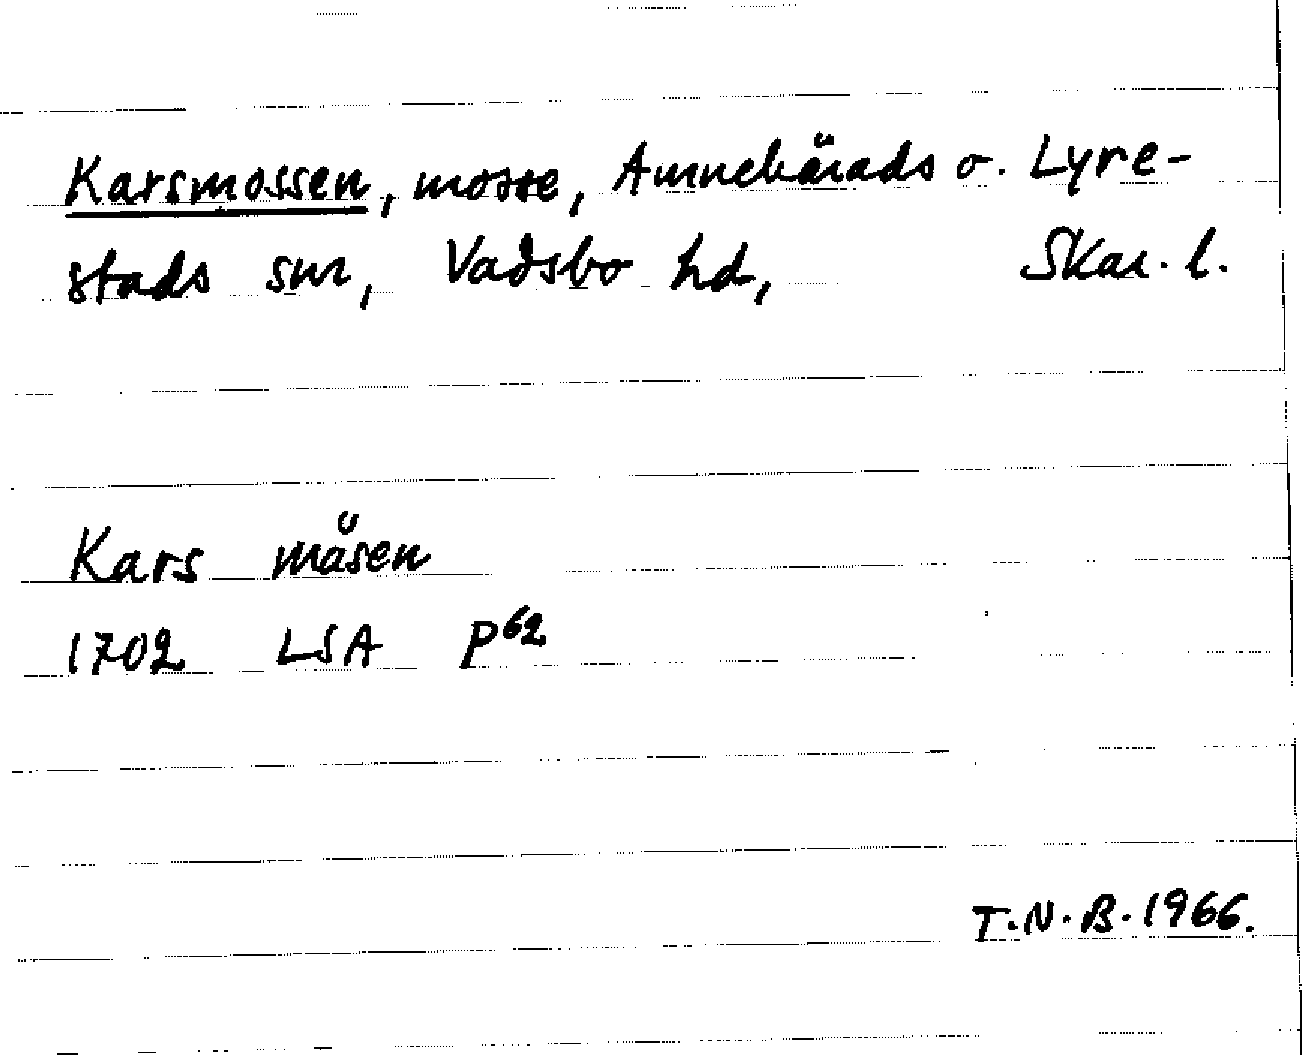 Karsmossen, mosse, Amnehärads o. Lyre-
stads snr, Vadsbo hd, Skar. l.
Kars måsen
1702 LSA P62
T.N.B. 1966.